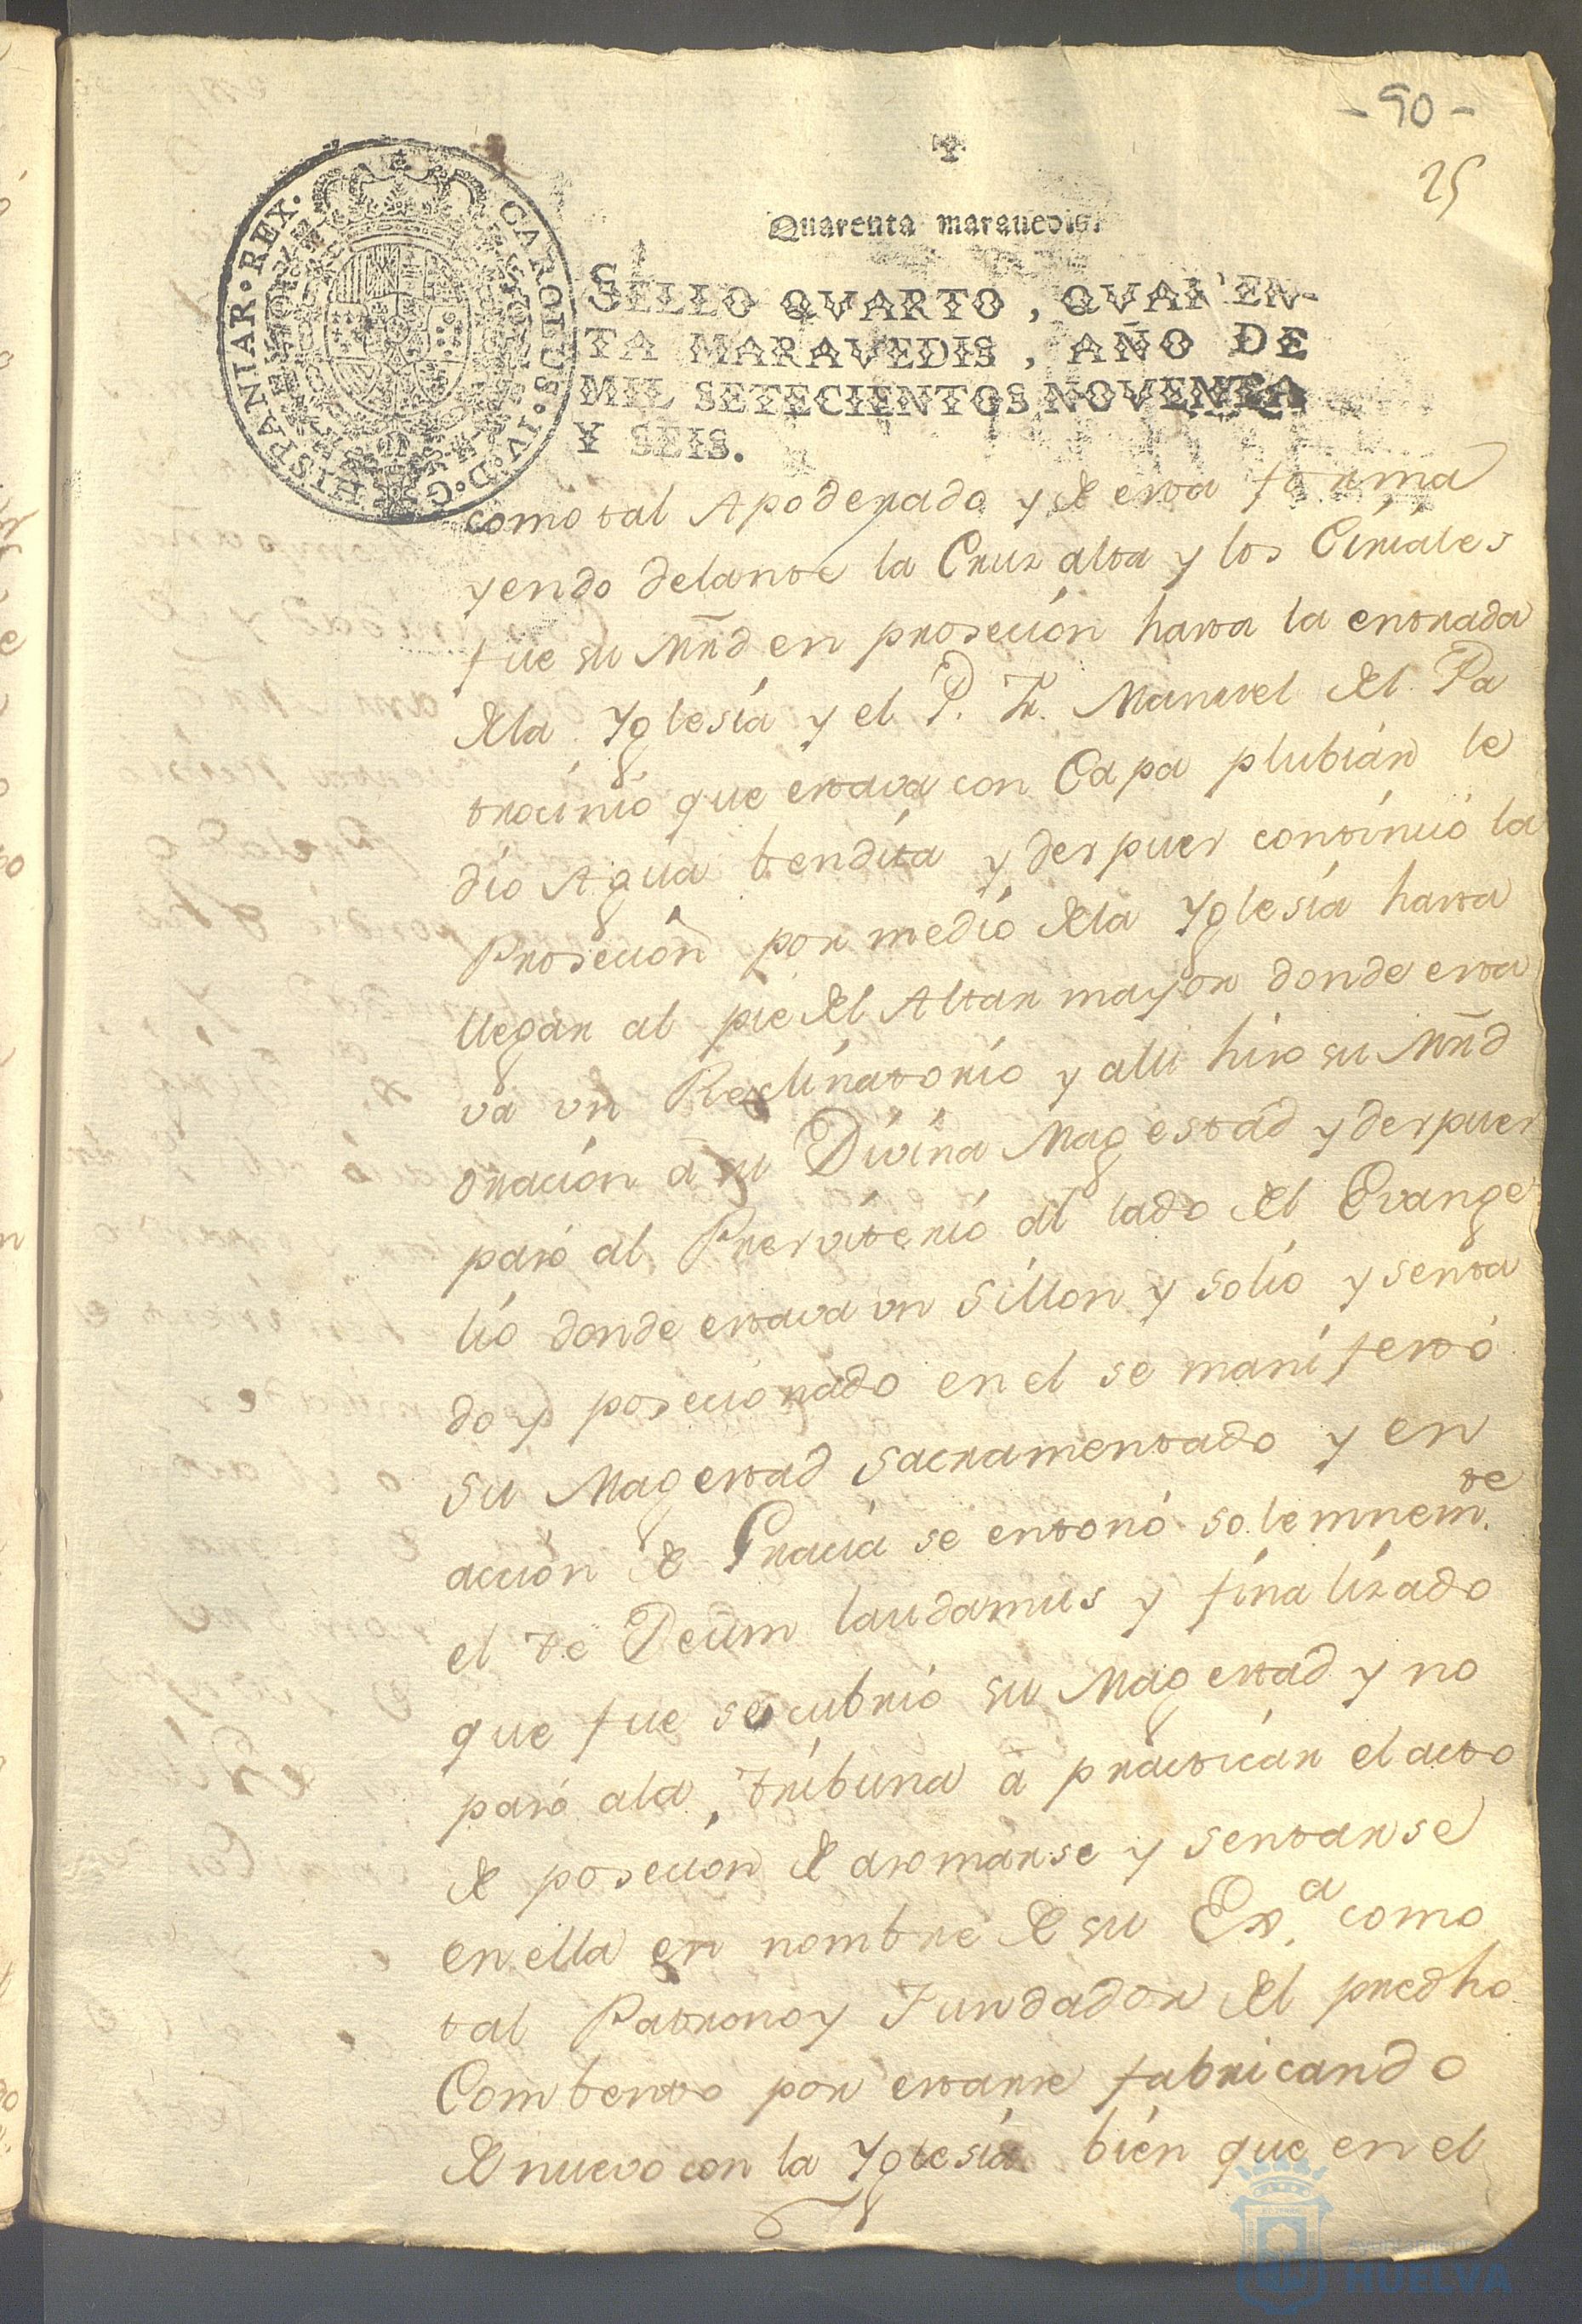 - 90 -
25
Quarenta maravedis.
SELLO QVARTO, QVAREN-
TA MARAVEDIS, AÑO DE
MIL SETECIENTOS NOVENTA
Y SEIS.
CAROLUS·IV·D·G·HISPANIAR·REX·
como tal Apoderado y de esta forma
yendo delante la Cruz alta y los Ciriales
fue su Mrd en proseción hasta la entrada
dela Yglesia y el P. Fr. Manuel del Pa
trocinio que estava con Capa plubiár le
dio Agua bendita y despues continuó la
Proseción por medio dela Yglesia hasta
llegar al pie del Altar mayor donde esta
va un Reclinatorio y alli hizo su Mrd
oración à su Divina Magestad y despues
pasó al Presviterio al lado del Evange
lio donde estava un Sillon y solio y senta
do y posecionado en el se manifestó
su Magestad Sacramentado y en
acción de Gracia se entonó solemnemte.
el te Deum laudamus y finalizado
que fue se cubrió su Magestad y no
pasó ala tribuna à practicár el acto
de poseción de asomarse y sentarse
en ella en nombre de su Exa. como
tal Patrono y Fundador del predho
Combento por estarse fabricando
de nuevo con la Yglesia bien que en el
Ayuntamiento de
HUELVA